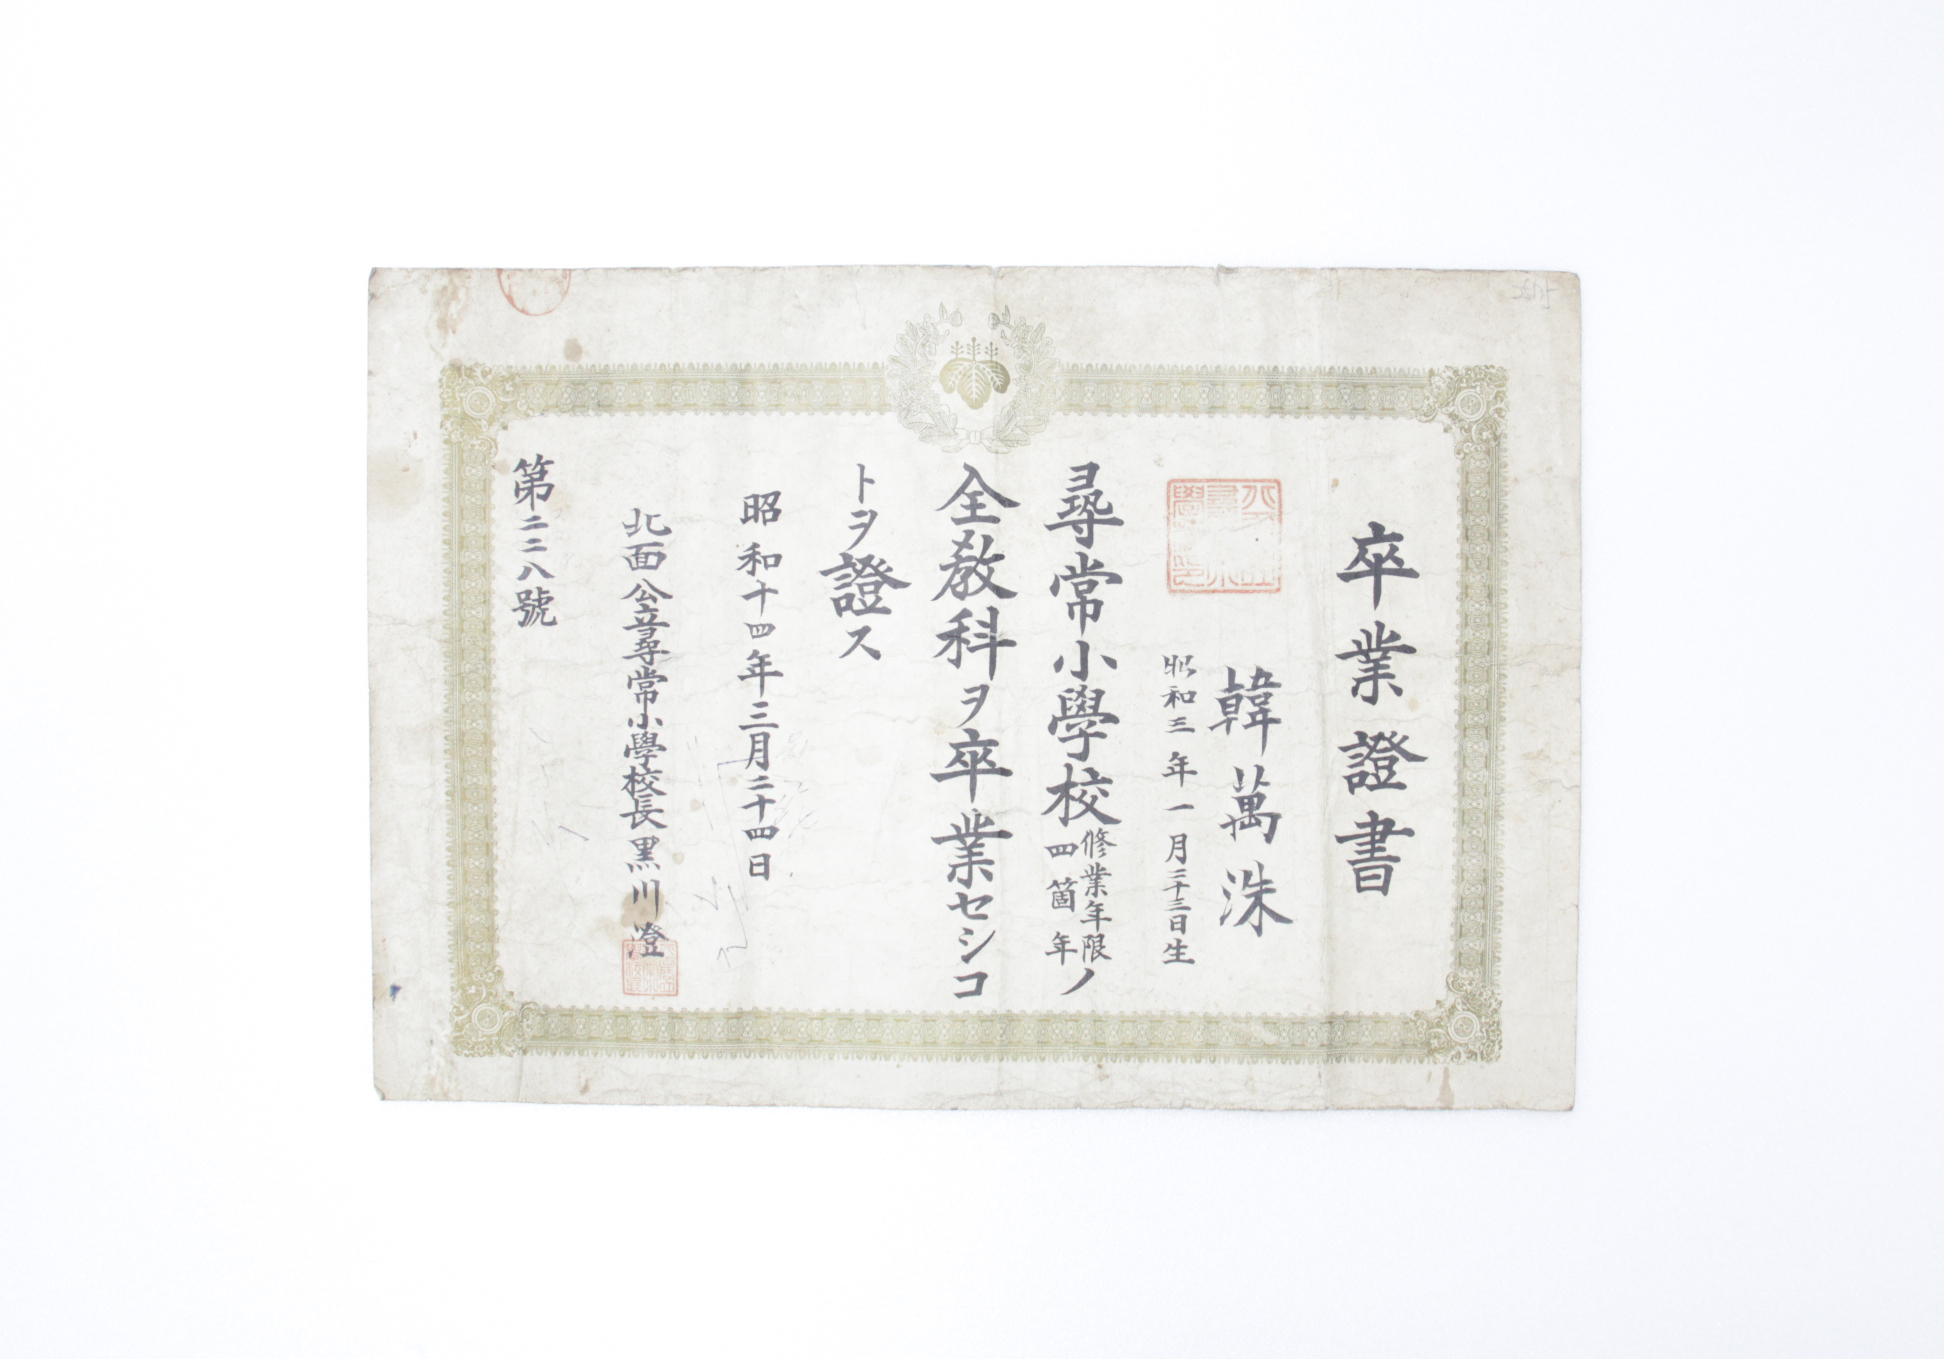 卒業證書
韓萬洙
昭和三年一月二十三日生
尋常小學校修業年限四箇年ノ
全敎科ヲ卒業セシコ
トヲ證ス
昭和十四年三月二十四日
北面公立尋常小學校長黒川澄
第二二八號